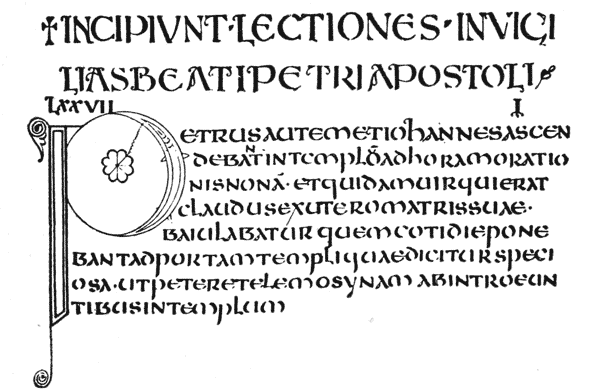 ☩INCIPIVNT·LECTIONES·INVIGI
LIASBEATIPETRIAPOSTOLI
LXXVII I
PETRUSAUTEMETIOHANNESASCEN
DEBANTINTEMPLŌADHORAMORATIO
NISNONĀ·ETQUIDAMUIRQUIERAT
CLAUDUSEXUTEROMATRISSUAE·
BAIULABATURQUEMCOTIDIEPONE
BANTADPORTAMTEMPLIQUAEDICITURSPECI
OSA·UTPETERETELEMOSYNAMABINTROEUN
TIBUSINTEMPLUM